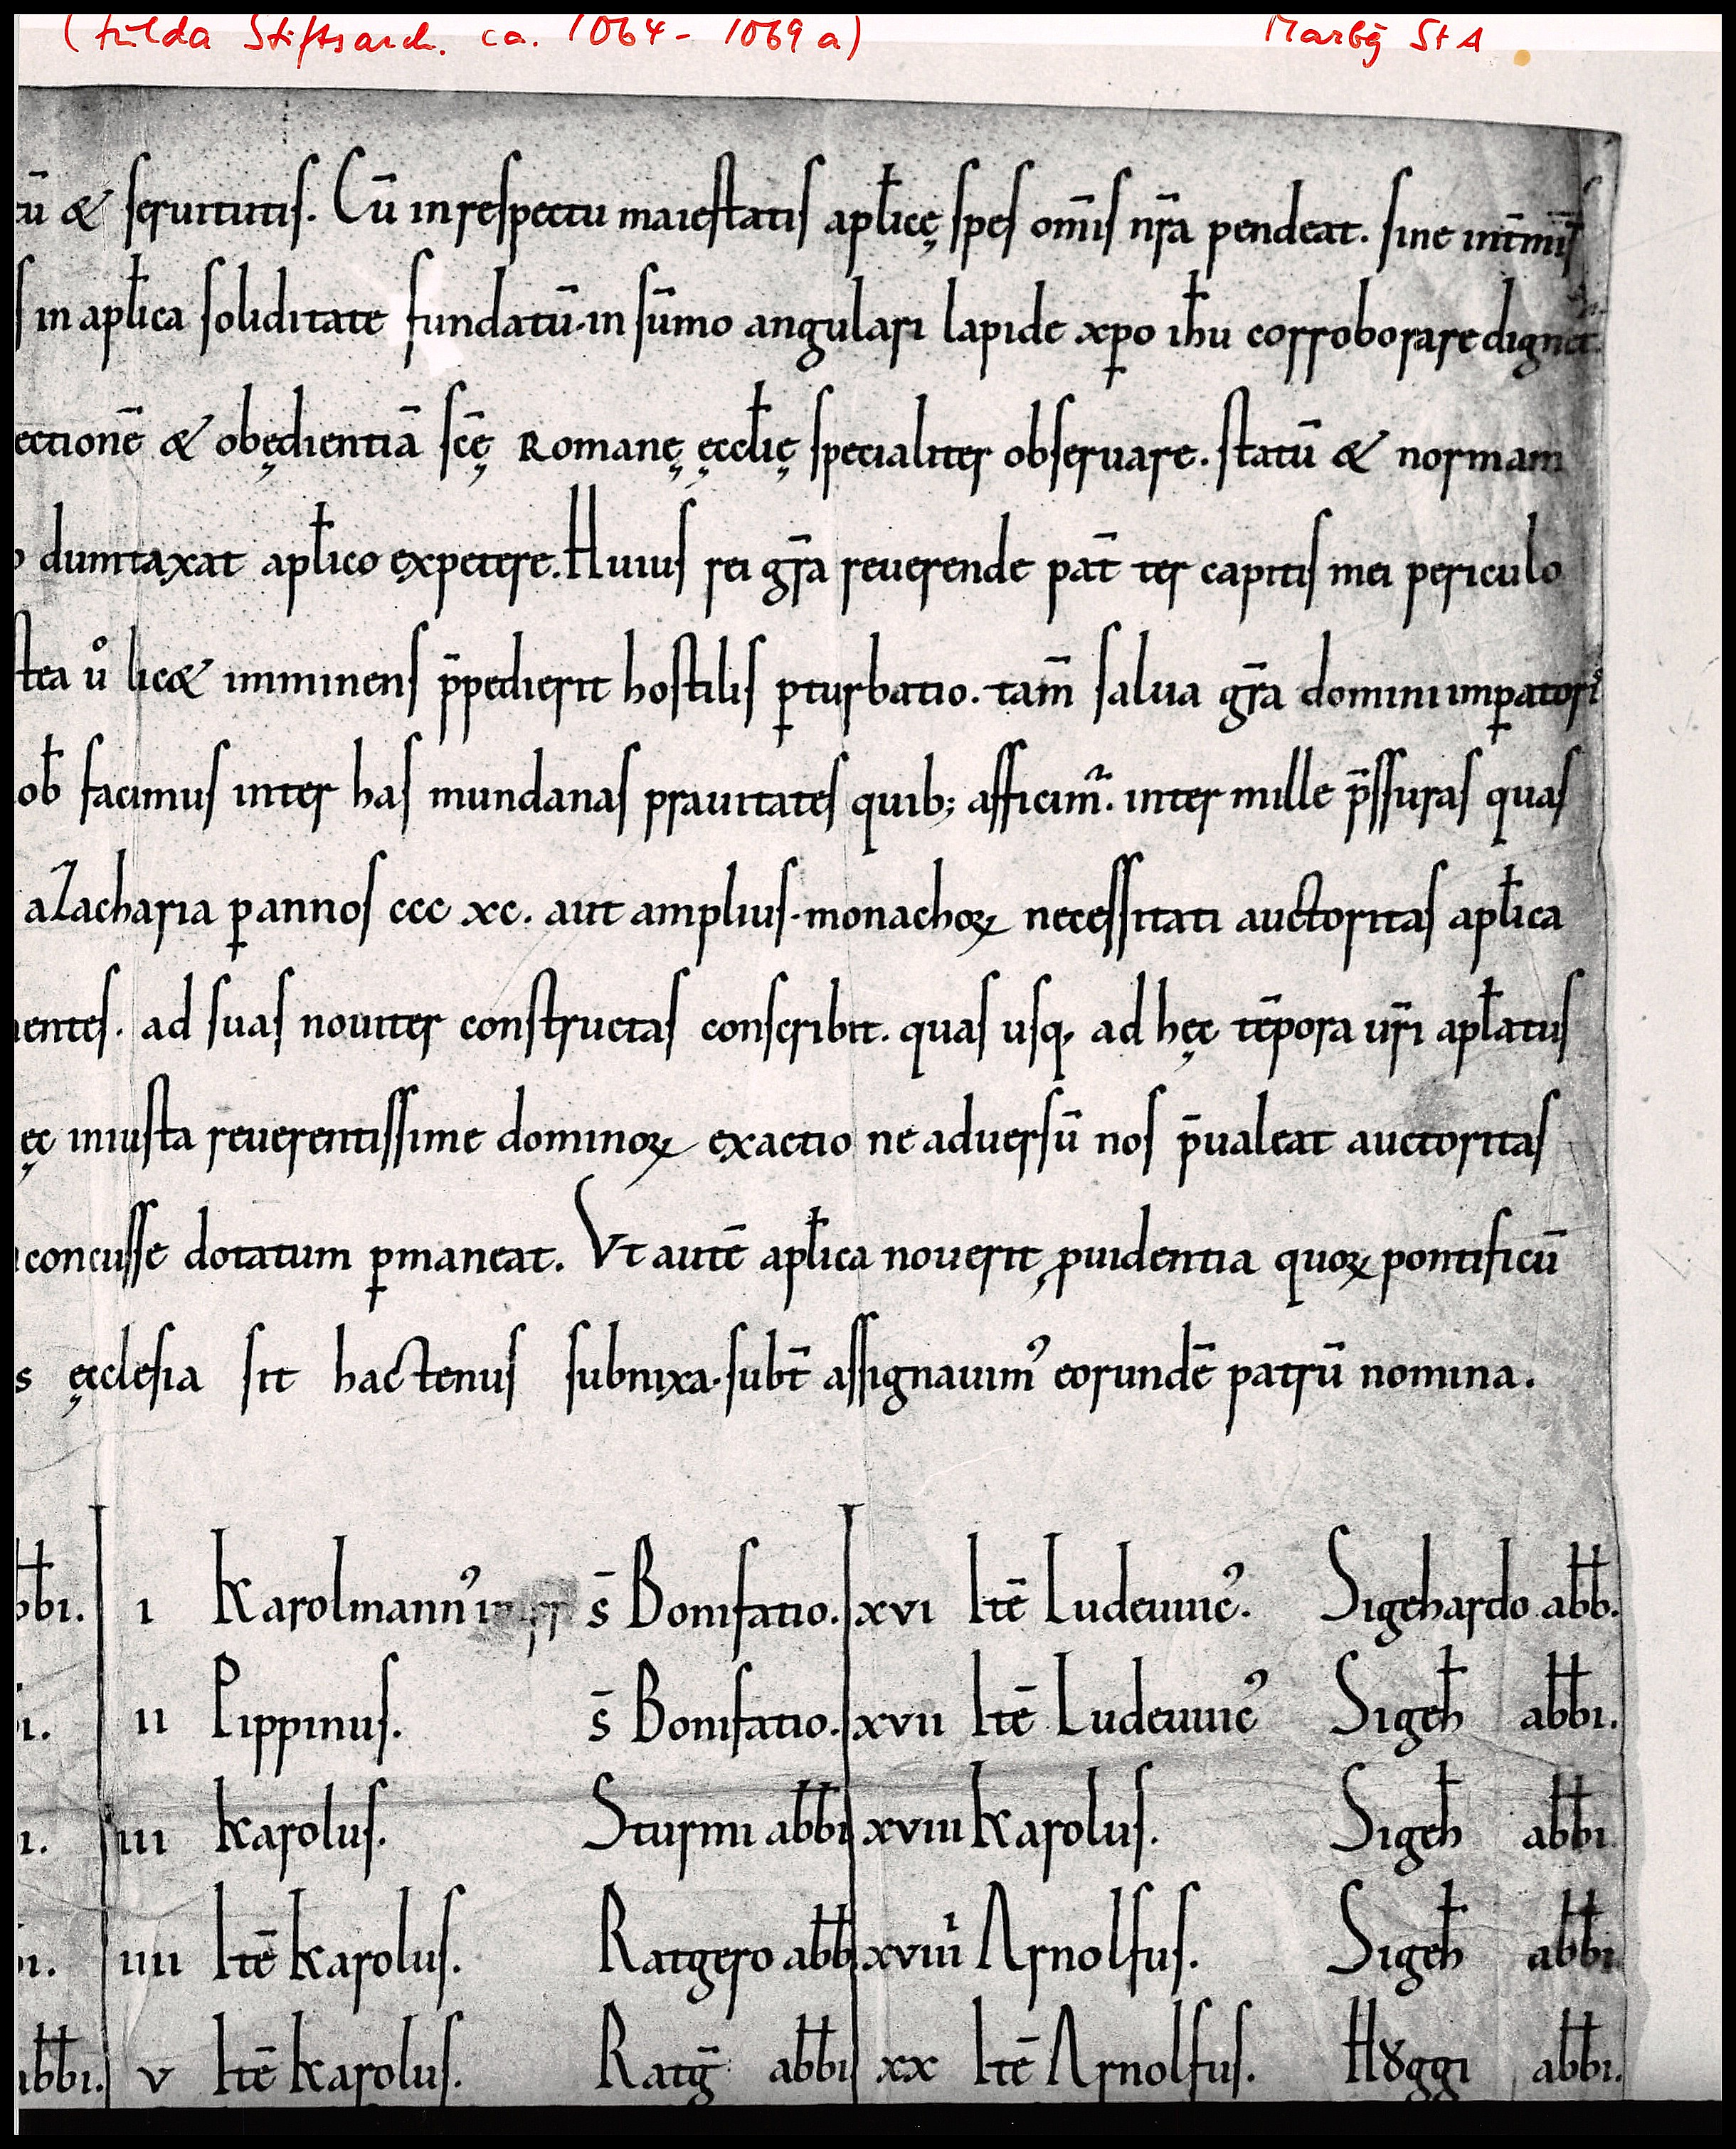 (Fulda Stiftsarch. ca. 1064 - 1069 a) Marbg StA
cū & seruitutis. Cū in respectu maiestatis apłicę spes om̄is nr̄a pendeat. sine int̄mis̄
s in apłica soliditate fundatū. in sūmo angulari lapide xp̄o ih̄u corroborare dignet.
ectionē & obędientiā sc̄ę Romanę ęccłię specialiter obseruare. statū & normam
o dumtaxat apłico expetere. Huius rei gr̄a reuerende pat̄ ter capitis mei periculo
stea uͦ lic& imminens p̄pedierit hostilis ꝑturbatio. tam̄ salua gr̄a domini imꝑatori
ob̄ facimus inter has mundanas prauitates quib; afficim̄. inter mille p̄ssuras quas
a Zacharia ꝑ annos ccc xc. aut amplius. monachoꝝ necessitati auctoritas apłica
entes. ad suas nouiter constructas conscribit. quas usq, ad hęc tēpora ur̄i apłatus
ęc iniusta reuerentissime dominoꝝ exactio ne aduersū nos p̄ualeat auctoritas
concusse dotatum ꝑmaneat. Vt autē apłica nouerit ꝓuidentia quoꝝ pontificū
s ęcclesia sit hactenus subnixa. subt̄ assignauimꝰ eorundē patrū nomina.
bbi. I Karolmannꝰ s̄ Bonifatio. xvi Itē Ludeuuicꝰ. Sigehardo abb̄.
i. II Pippinus. s̄ Bonifatio. xvii Itē Ludeuuicꝰ Sigeh̄ abb̄i.
i. III Karolus. Sturmi abb̄i xviii Karolus. Sigeh̄ abb̄i
i. IIII Itē Karolus. Ratgero abb̄ xviiii Arnolfus. Sigeh̄ abb̄i
abb̄i. V Itē Karolus. Ratḡ abb̄i xx Itē Arnolfus. Hȣggi abb̄i.